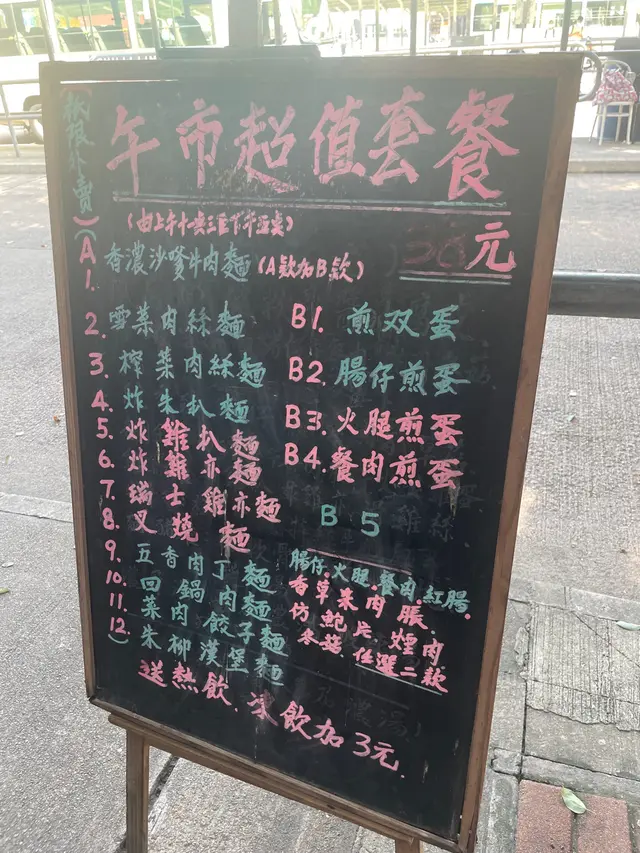 午市超值套餐
(由上午十一點三至下午五點)
元
(A
1. 香濃沙嗲牛肉麵 (A款加B款)
2. 雪菜肉絲麵
3. 榨菜肉絲麵
4. 炸朱扒麵
5. 炸雞扒麵
6. 炸雞亦麵
7. 瑞士雞亦麵
8. 叉燒麵
9. 五香肉丁麵
10. 回鍋肉麵
11. 菜肉餃子麵
12. 朱柳漢堡麵
B1. 煎双蛋
B2. 腸仔煎蛋
B3. 火腿煎蛋
B4. 餐肉煎蛋
B5
腸仔.火腿.餐肉.紅腸.
香草朱肉腸.
片.煙肉
任選二款
送熱飲.凍飲加3元.